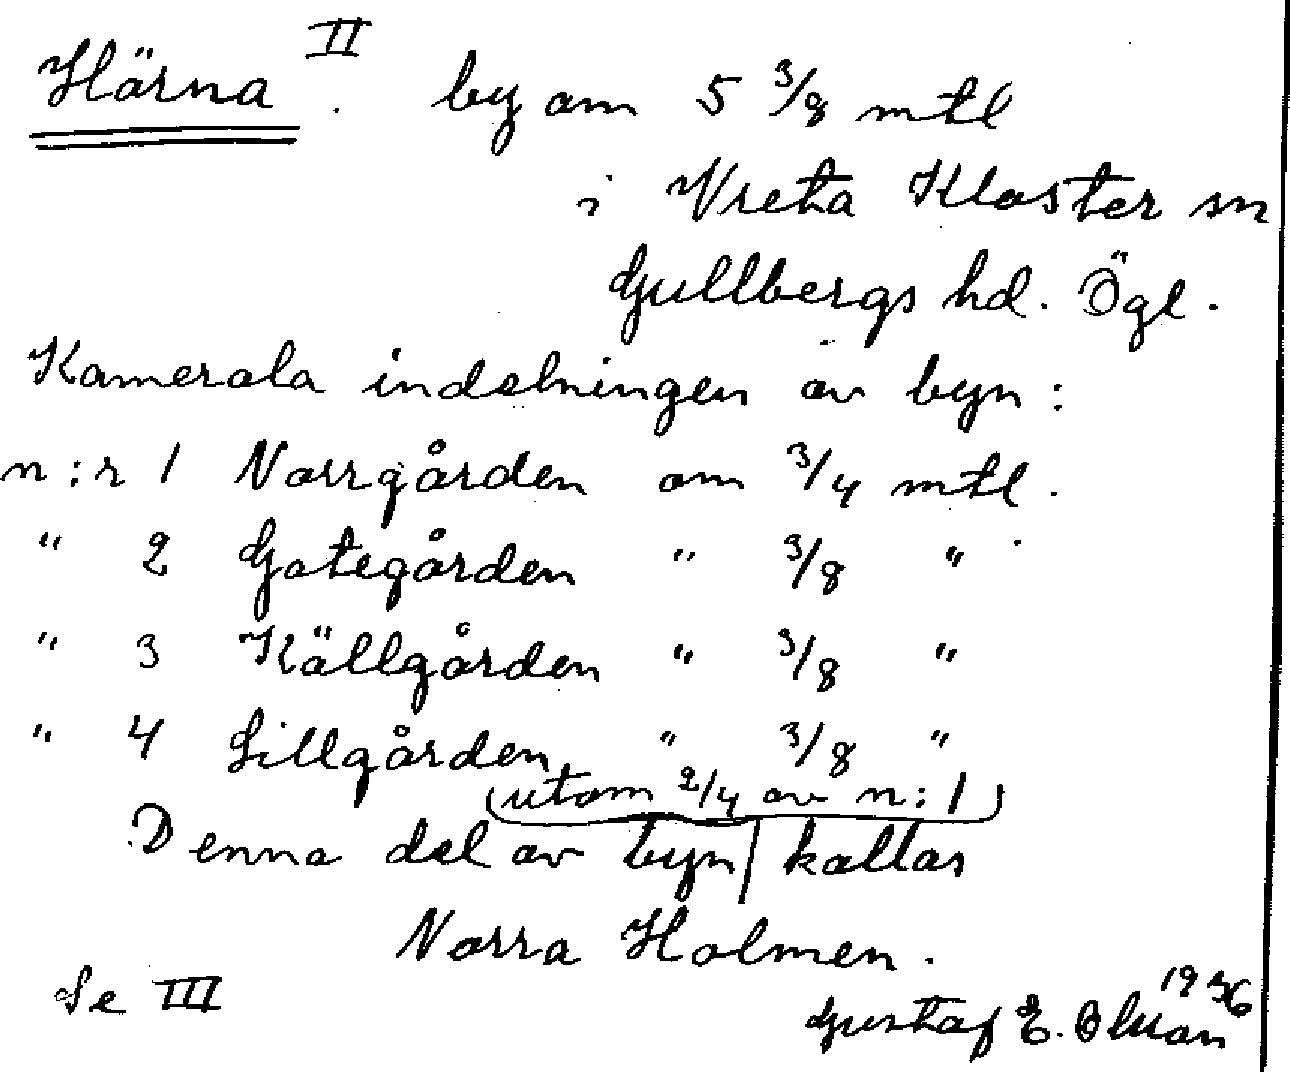 Härna II. by om 5 3/8 mtl
i Vreta Kloster sn
Gullbergs hd. Ögl.
Kamerala indelningen av byn:
n:r 1 Norrgården om 3/4 mtl.
" 2 Gategården " 3/8 "
" 3 Källgården " 3/8 "
" 4 Lillgården " 3/8 "
(utom 2/4 av n:1)
Denna del av byn/ kallas
Norra Holmen.
Se III
1936
Gustaf E. Olson